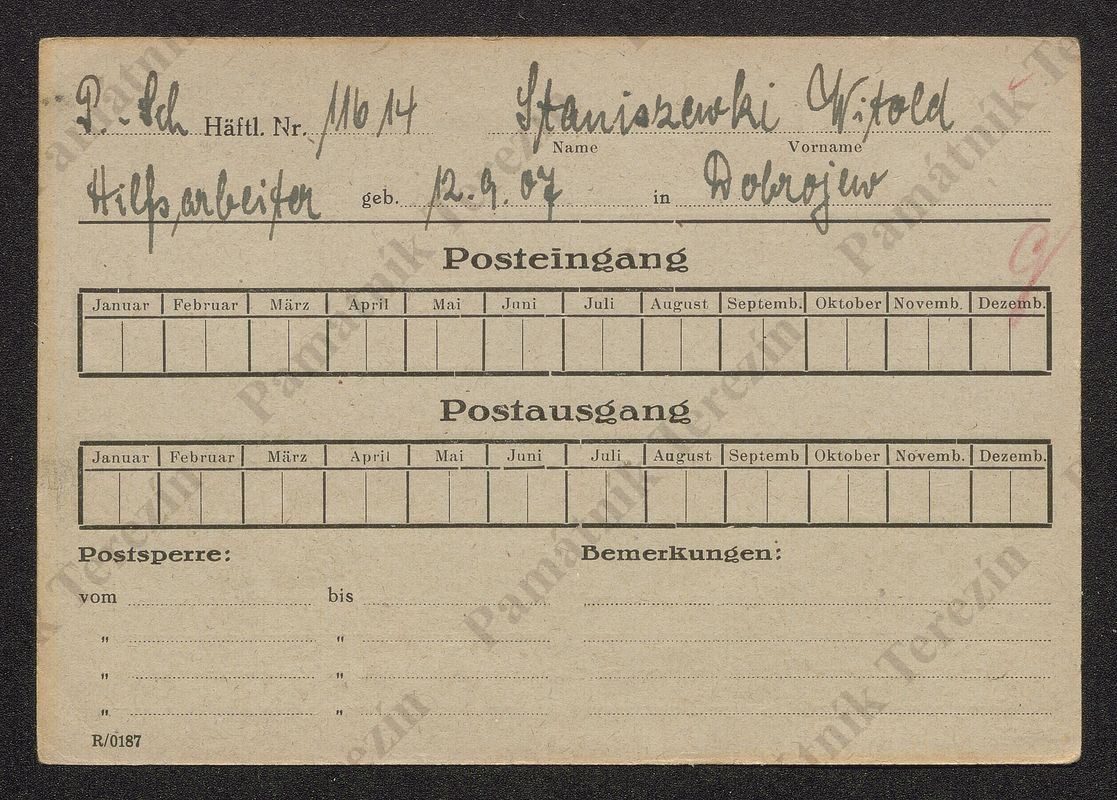 P.-Sch Häftl. Nr. 11614 Staniszewki Witold
Name Vorname
Hilfsarbeiter geb. 12.9.07 in Dobrojew
Posteingang
Januar Februar März April Mai Juni Juli August Septemb. Oktober Novemb. Dezemb.
Postausgang
Januar Februar März April Mai Juni Juli August Septemb Oktober Novemb. Dezemb.
Postsperre: Bemerkungen:
vom bis
" "
" "
" "
R/0187
Památník Terezín